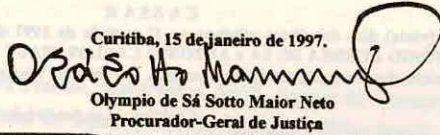 Curitiba, 15 de janeiro de 1997.
Olympio de Sá Sotto Maior Neto
Procurador-Geral de Justiça